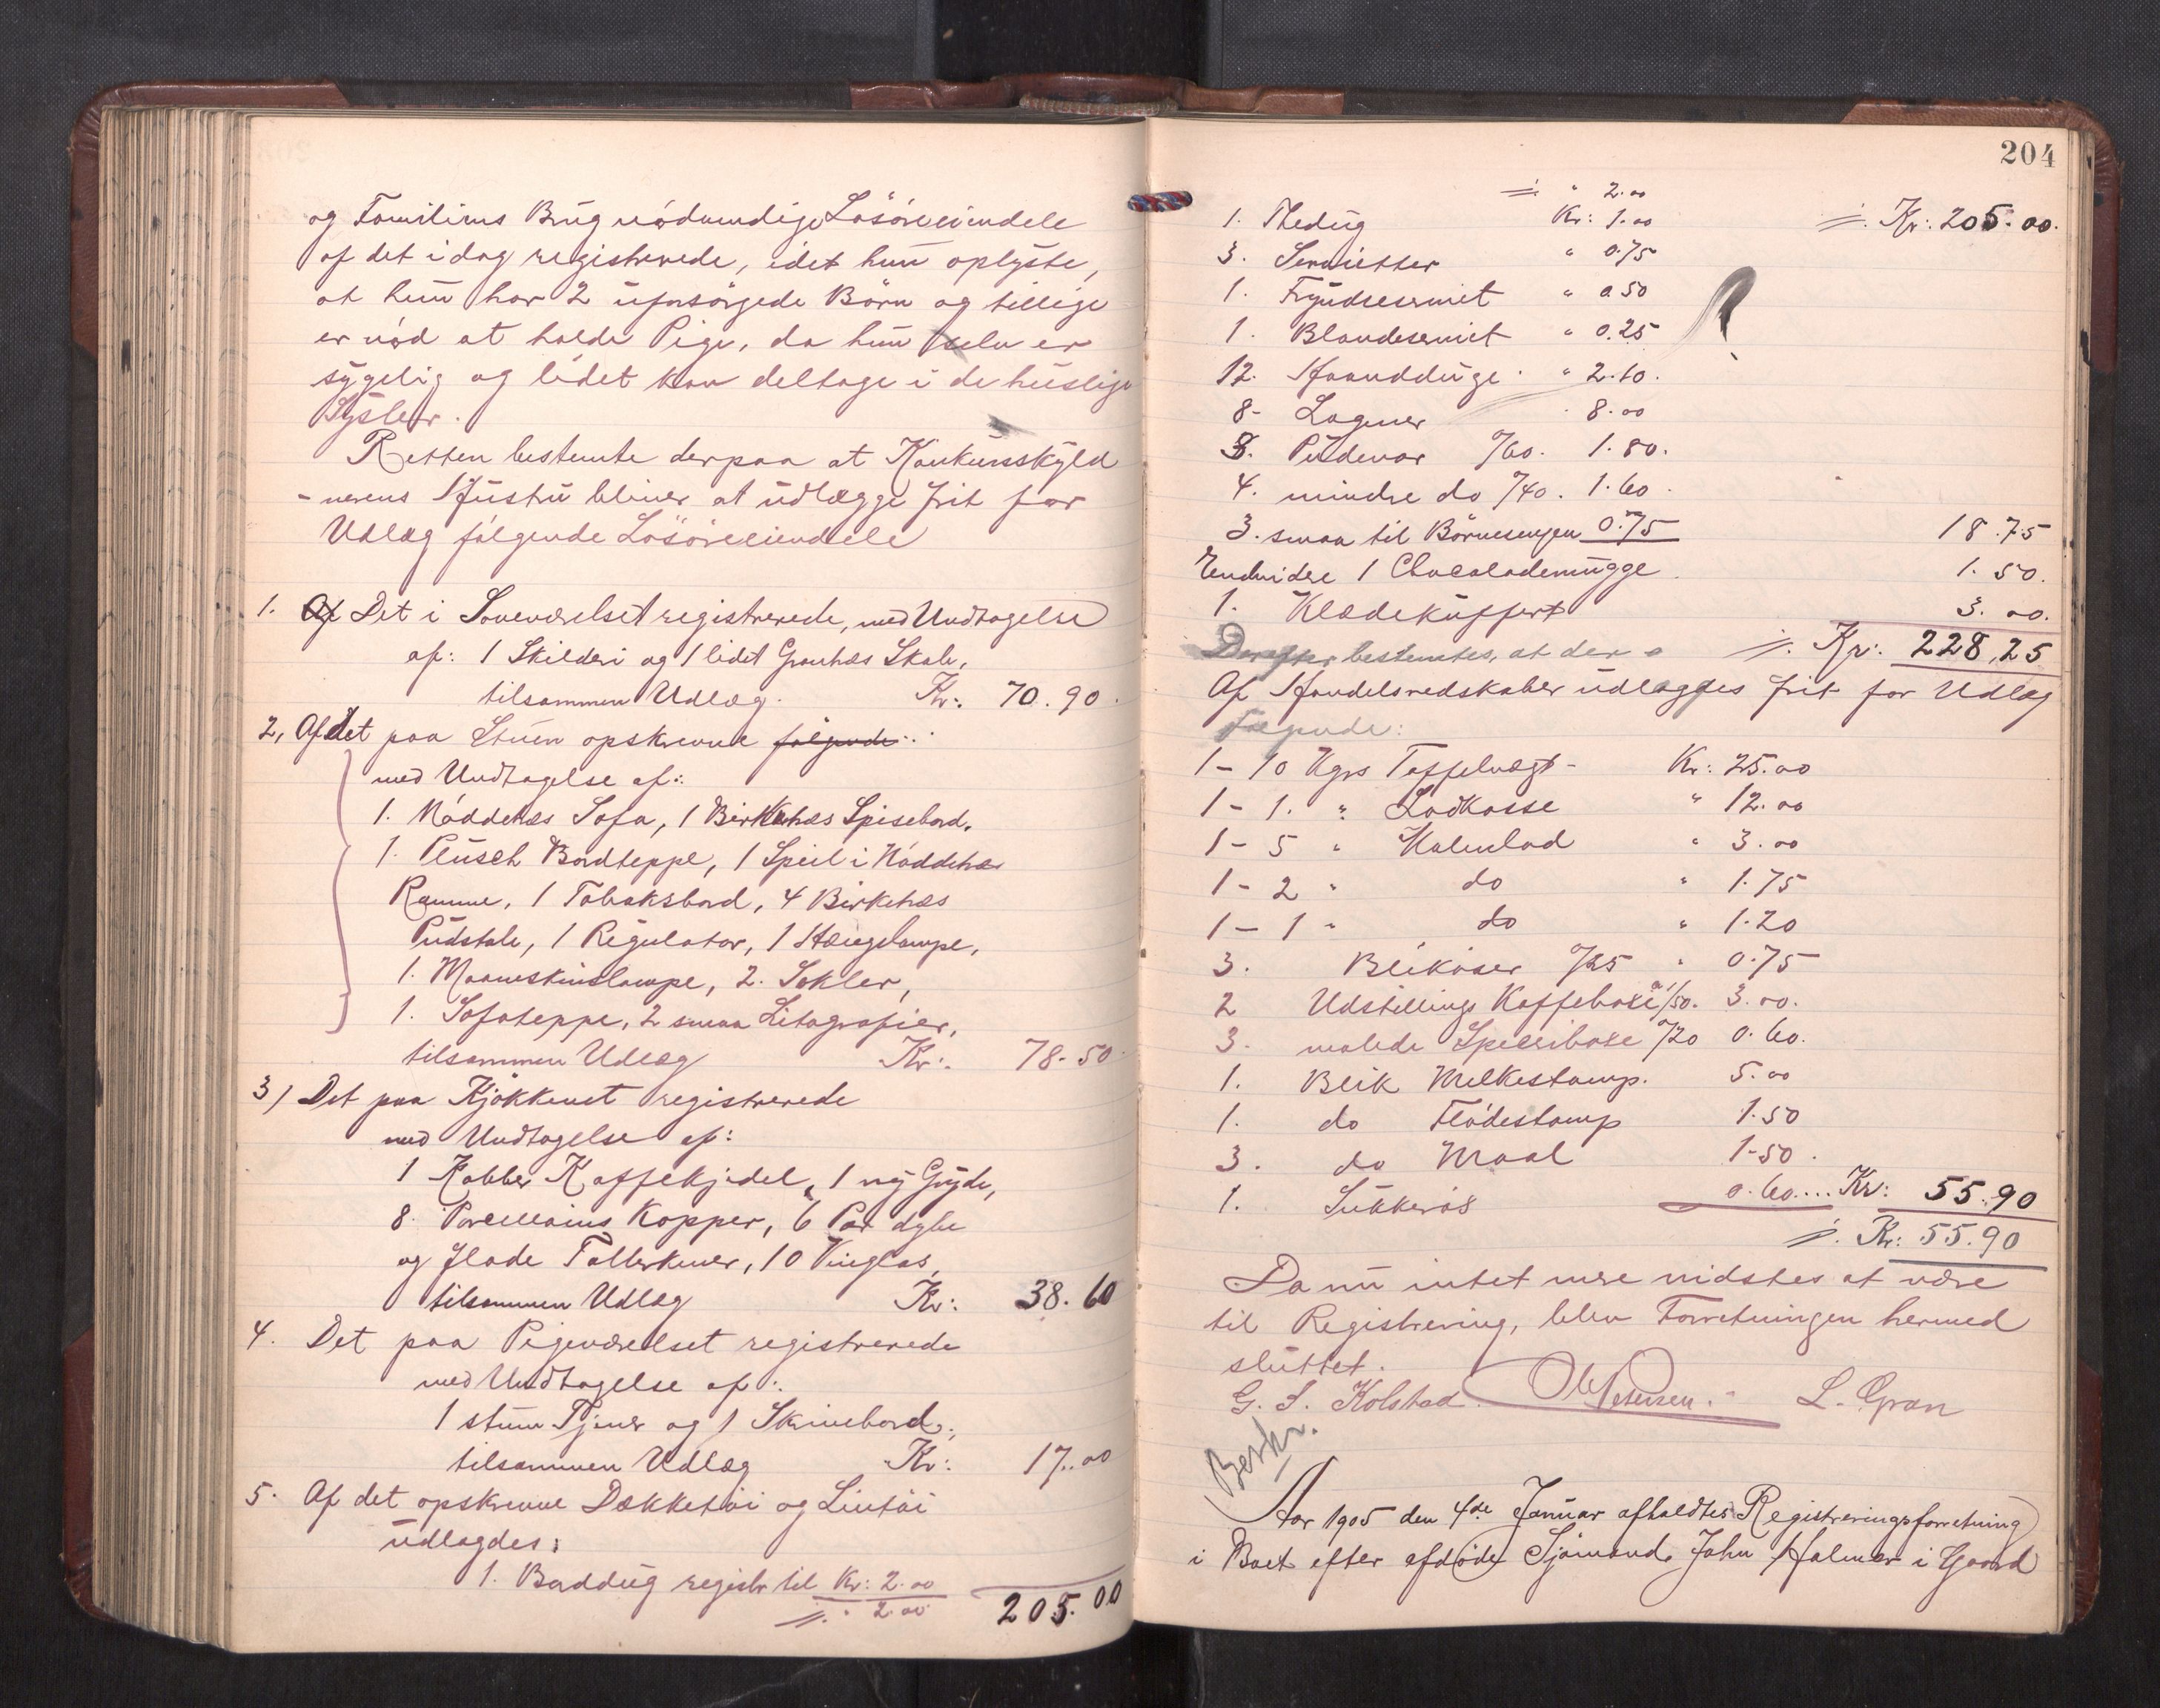 og Familiens Brug nödvendige Lösöreeiendele
af det idag registrerede, idet hun oplyste,
at hun har 2 uforsörgede Börn og tillige
er nöd at holde Pige, da hun selv er
sygelig og lidet kan deltage i de huslige
Sysler.
Retten bestemte derpaa at Konkursskyld
-nerens Hustru bliver at udlægge frit for
Udlæg fölgende Lösöreeiendele
1. Af Det i Soveværelset registrerede, med Undtagelse
af: 1 Skilderi og 1 lidet Granhæs Skab,
tilsammen Udlæg. Kr: 70.90.
2, Af det paa Stuen opskrevne fölgende:
med Undtagelse af:
1. Nöddehæs Sofa, 1 Birkehæs Spisebord.
1. Plusch Bordteppe, 1 Speil i Nöddehæs
Ramme, 1 Tobaksbord, 4 Birkehæs
Pudstole, 1 Regulator, 1 Hængelampe,
1. Maaneskinslampe, 2. Sokler,
1. Sofateppe, 2 smaa Litografier,
tilsammen Udlæg Kr: 78.50.
3) Det paa Kjökkenet registrerede
med Undtagelse af:
1 Kobber Kaffekjedel, 1 ny Gryde,
8. Porcellains Kopper, 6 Par dybe
og flade Tallerkener, 10 Vinglas,
tilsammen Udlæg Kr: 38.60
4. Det paa Pigeværelset registrerede
med Undtagelse af:
1 stum Tjener og 1 Skrivebord,
tilsammen Udlæg Kr: 17.00
5. Af det opskrevne Dækketöi og Lintöi
udlagdes:
1. Borddug registr til Kr: 2.00
" 2.00 205.00
204
" 2.00
1. Thedug Kr: 1.00 Kr: 205.00.
3. Servietter " 0.75
1. Frynseserviet " 0.50
1. Blondeserviet " 0.25
12. Haandduge " 2.10.
8- Lagener 8.00
3. Pudevar 0/60. 1.80.
4. mindre do 0/40. 1.60.
3. smaa til Börnesengen 0.75 18.75
Endvidere 1 Chocolademugge 1.50.
1. Klædekuffert 3.00.
Derefter bestemtes, at der Kr: 228,25
Af Handelsredskaber udlagdes frit for Udlæg
Fölgende:
1 - 10 Kgrs Taffelvægt - Kr: 25.00
1 - 1. " Lodkasse " 12.00
1 - 5 " Malmlod " 3.00
1 - 2 " do " 1.75
1 - 1 " do " 1.20
3. Bliköser 0/25 " 0.75
2 Udstillings Kaffeboxe a 1/50. 3.00.
3. malede Speceriboxe 0/20 0.60.
1. Blik Melkestamp. 5.00
1. do Flödestamp 1.50
3. do Maal 1.50.
1. Sukkerös 0.60.... Kr: 55.90
Kr: 55.90
Da nu intet mere vidstes at være
til Registrering, blev Forretningen hermed
sluttet.
G. S. Kolstad. Petersen. L. Gran
Beskr.
Aar 1905 den 4de Januar afholdtes Registreringsforretning
i Boet efter afdöde Sjömand John Halmer i Gaard